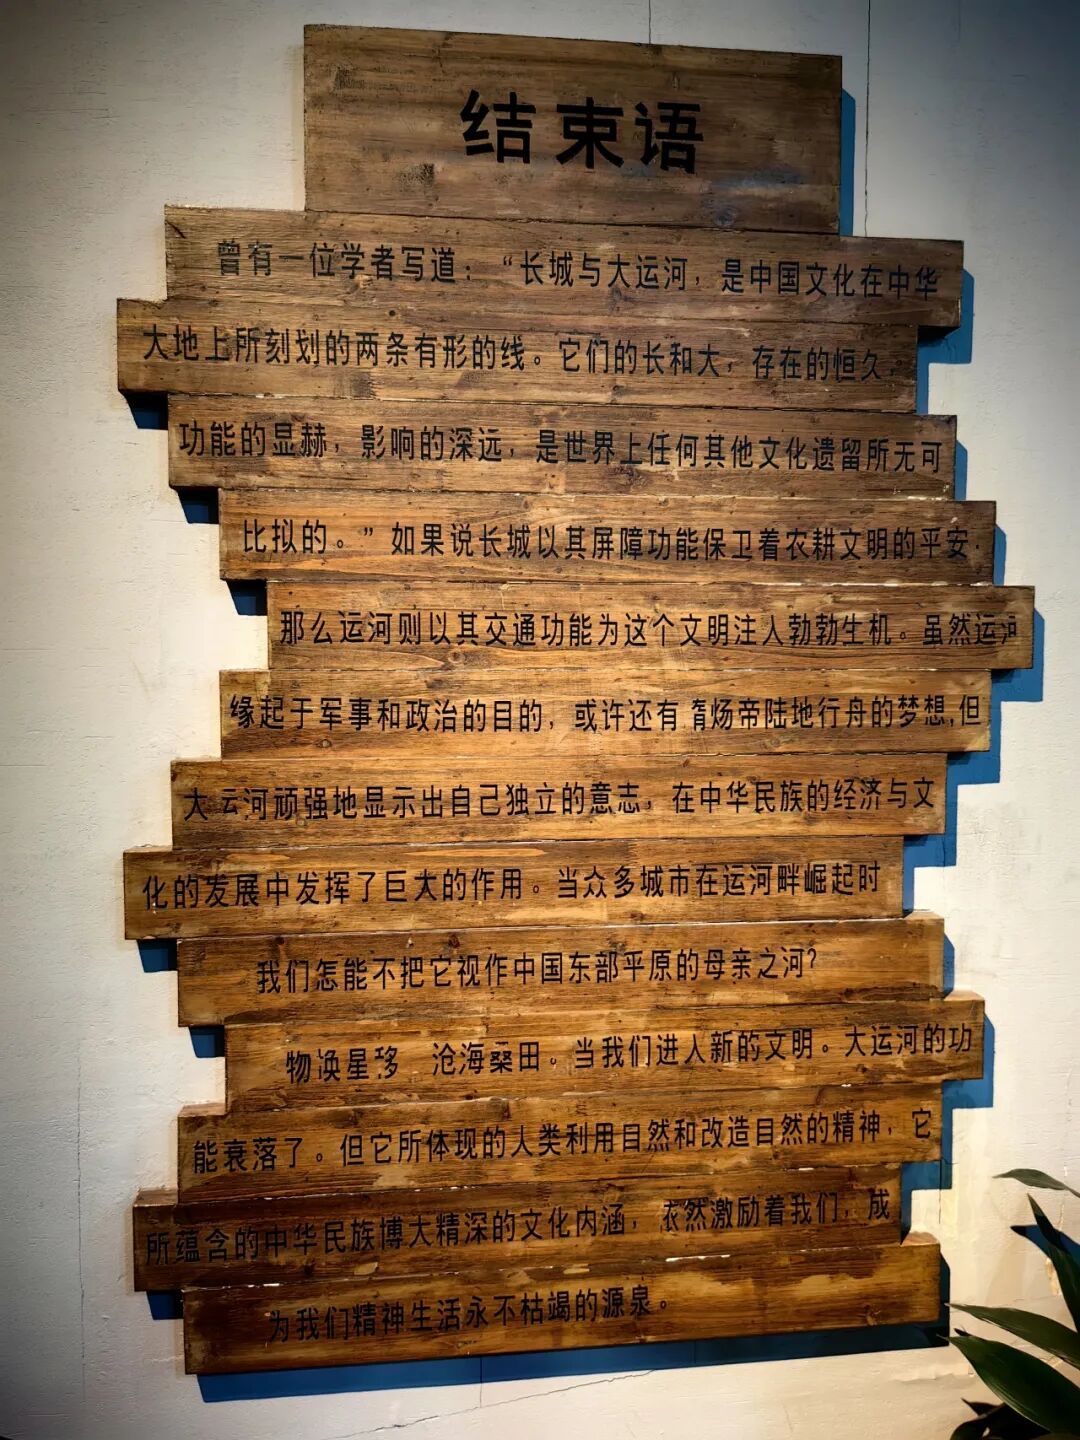 结束语
曾有一位学者写道：“长城与大运河，是中国文化在中华
大地上所刻划的两条有形的线。它们的长和大，存在的恒久，
功能的显赫，影响的深远，是世界上任何其他文化遗留所无可
比拟的。”如果说长城以其屏障功能保卫着农耕文明的平安，
那么运河则以其交通功能为这个文明注入勃勃生机。虽然运河
缘起于军事和政治的目的，或许还有隋炀帝陆地行舟的梦想，但
大运河顽强地显示出自己独立的意志，在中华民族的经济与文
化的发展中发挥了巨大的作用。当众多城市在运河畔崛起时
我们怎能不把它视作中国东部平原的母亲之河？
物换星移 沧海桑田。当我们进入新的文明。大运河的功
能衰落了。但它所体现的人类利用自然和改造自然的精神，它
所蕴含的中华民族博大精深的文化内涵，依然激励着我们，成
为我们精神生活永不枯竭的源泉。